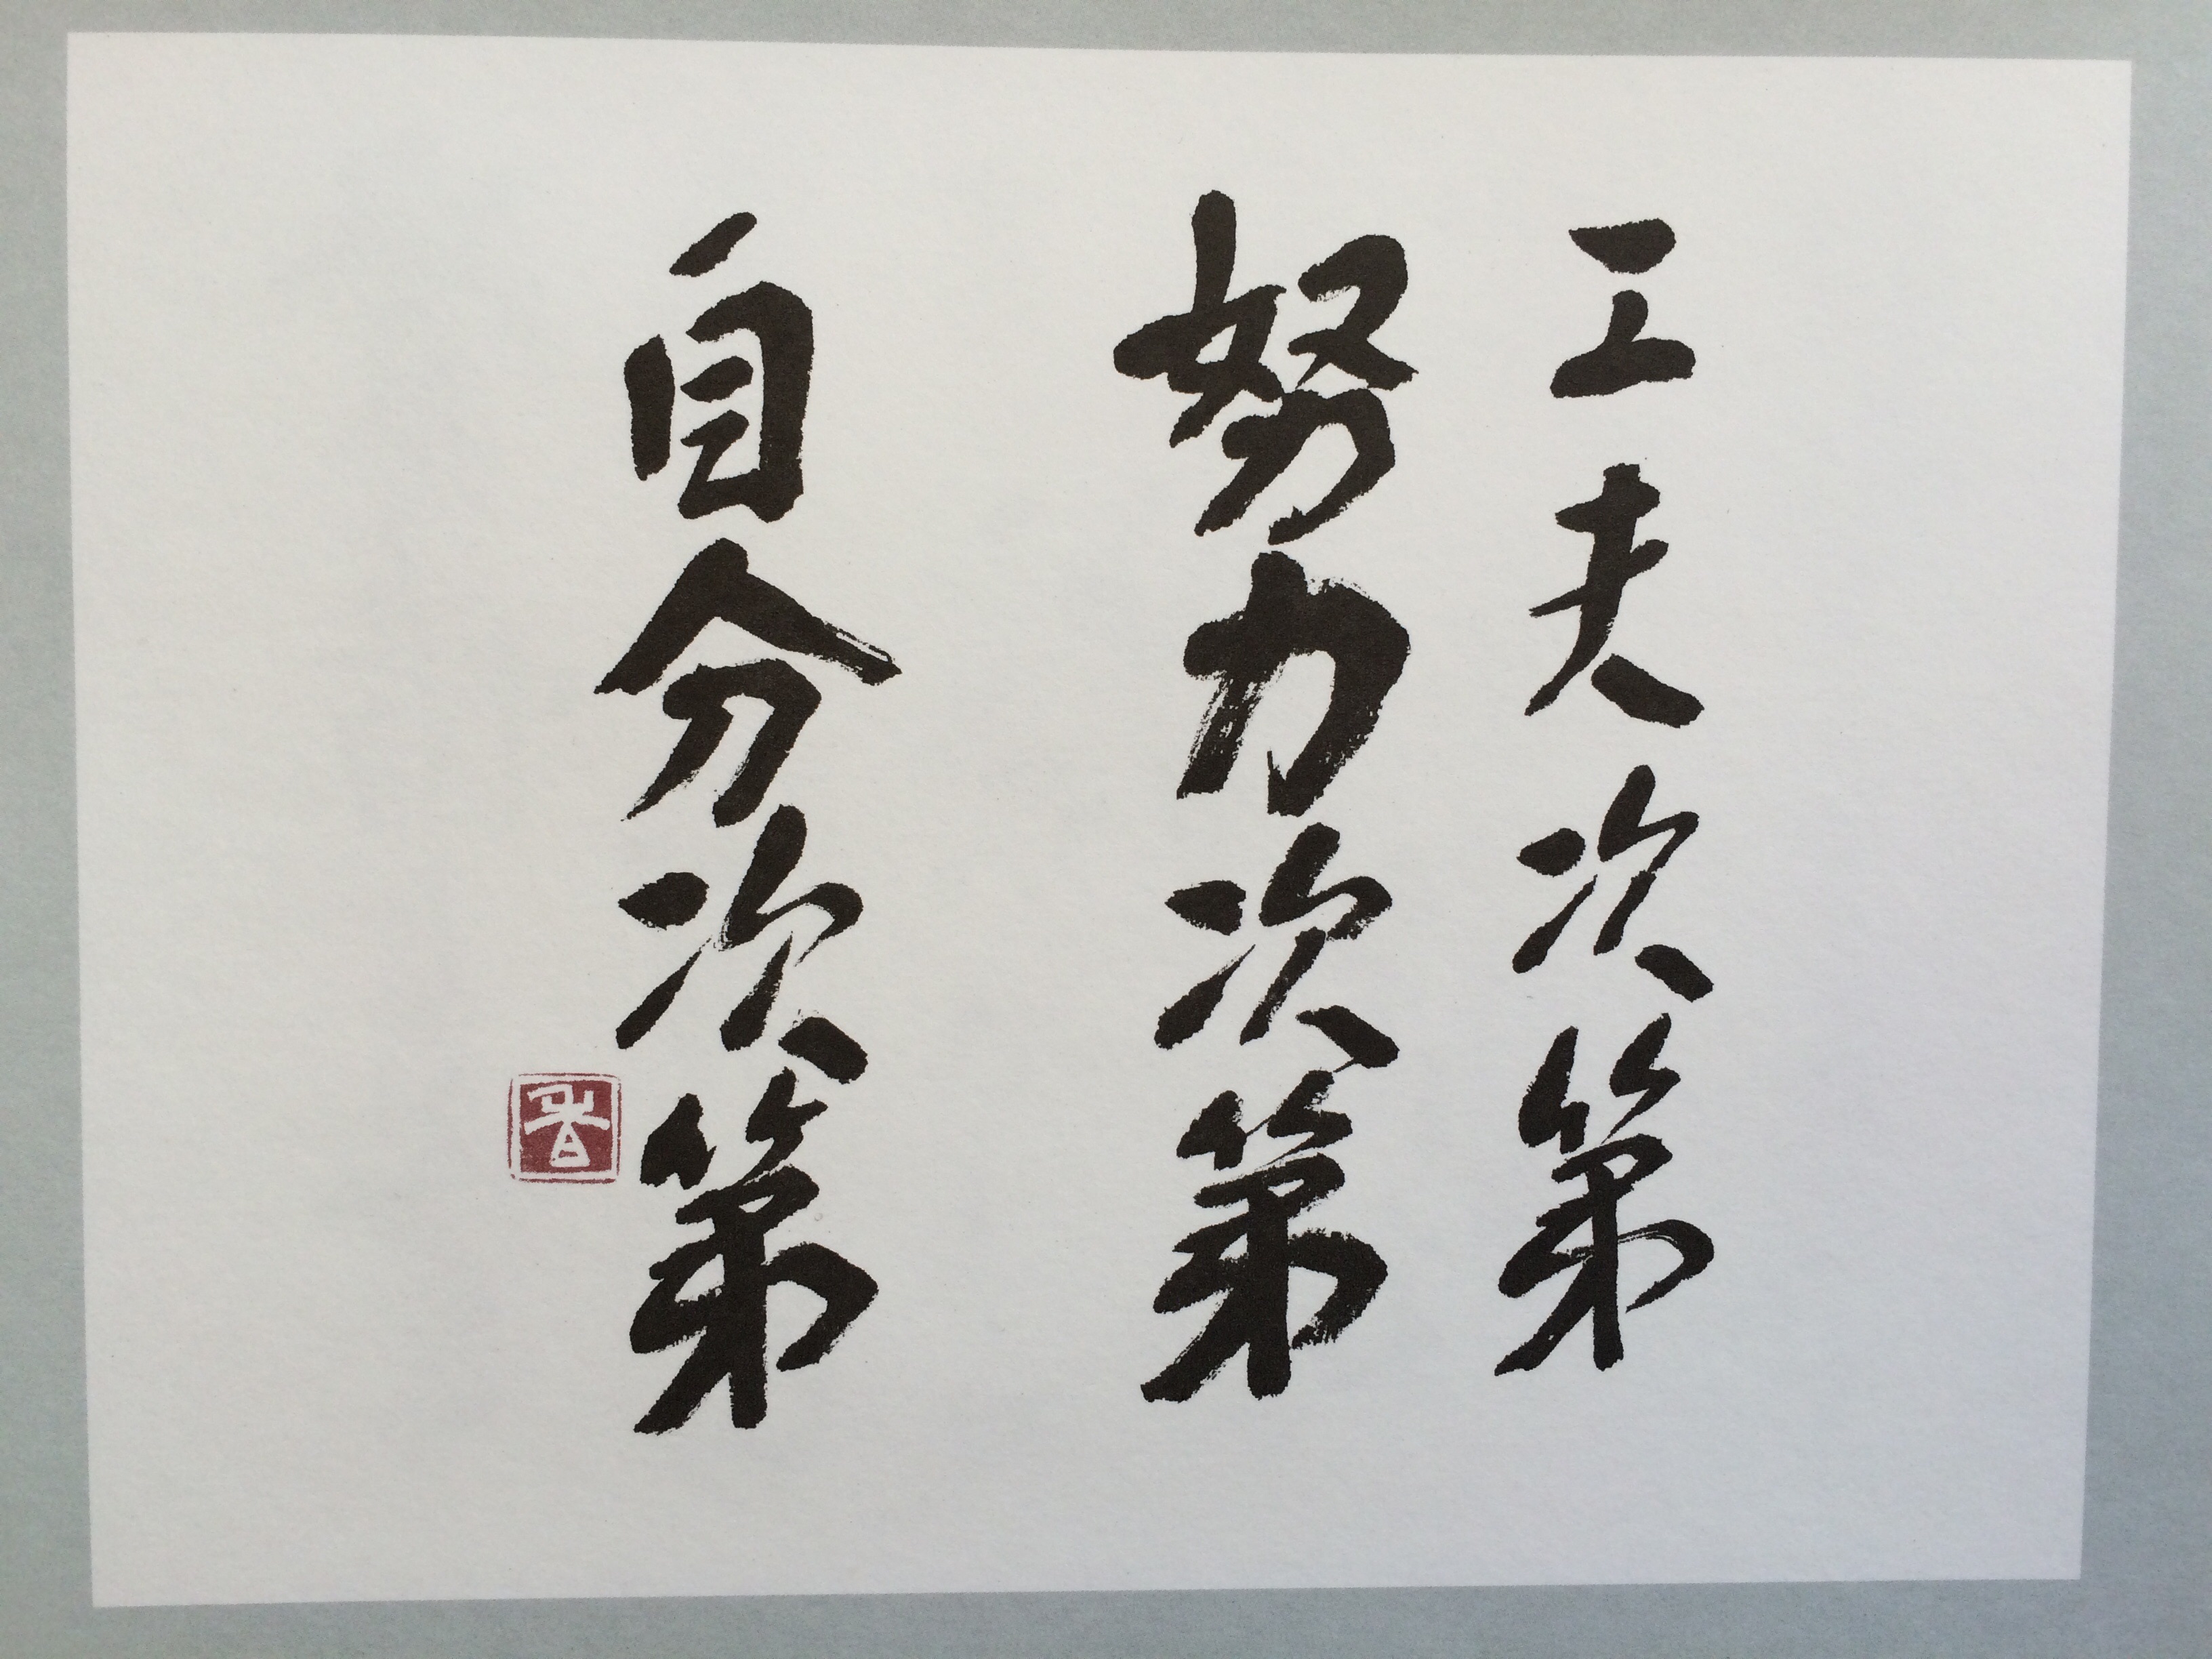 工夫次第
努力次第
自分次第